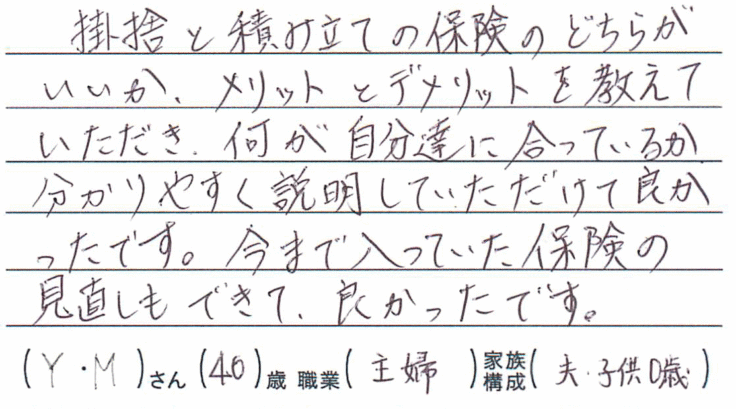 掛捨と積み立ての保険のどちらが
いいか、メリットとデメリットを教えて
いただき、何が自分達に合っているか
分かりやすく説明していただけて良か
ったです。今まで入っていた保険の
見直しもできて、良かったです。
(Y・M)さん(40)歳 職業(主婦)家族構成(夫・子供0歳)